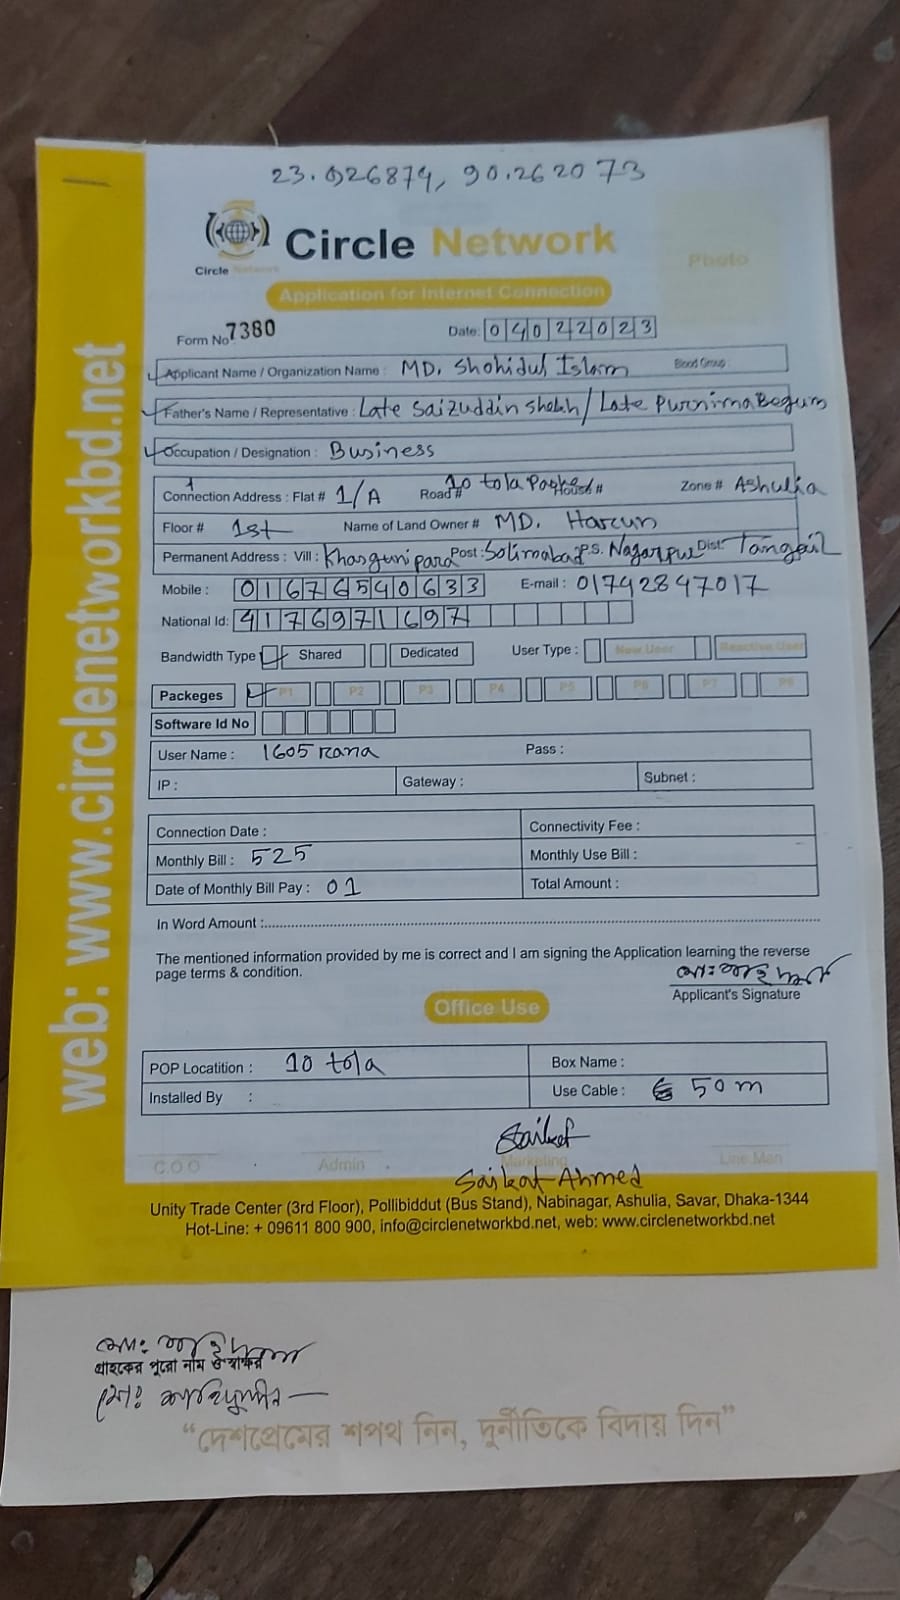 23.926879, 90.262073
Circle Network
Circle Network
Photo
Application for Internet Connection
Form No 7380 Date: 04022023
Applicant Name / Organization Name : MD. Shohidul Islam Blood Group :
Father's Name / Representative : Late Saizuddin Shekh / Late Purnima Begum
Occupation / Designation : Business
Connection Address : Flat # 1/A Road # 10 tola House # Zone # Ashulia
Floor # 1st Name of Land Owner # MD. Harun
Permanent Address : Vill : Khasgunipara Post : Solimabad P.S. Nagarpur Dist: Tangail
Mobile : 01676540633 E-mail : 01742847017
National Id: 4176971697
Bandwidth Type Shared Dedicated User Type : New User Reactive User
Packeges P1 P2 P3 P4 P5 P6 P7 P8
Software Id No
User Name : 1605 rana Pass :
IP : Gateway : Subnet :
Connection Date : Connectivity Fee :
Monthly Bill : 525 Monthly Use Bill :
Date of Monthly Bill Pay : 01 Total Amount :
In Word Amount :
The mentioned information provided by me is correct and I am signing the Application learning the reverse
page terms & condition.
Applicant's Signature
Office Use
POP Locatition : 10 tola Box Name :
Installed By : Use Cable : 50 m
C.O.O Admin Marketing Line Man
Saikat Ahmed
Unity Trade Center (3rd Floor), Pollibiddut (Bus Stand), Nabinagar, Ashulia, Savar, Dhaka-1344
Hot-Line: + 09611 800 900, info@circlenetworkbd.net, web: www.circlenetworkbd.net
web: www.circlenetworkbd.net
গ্রাহকের পুরো নাম ও স্বাক্ষর
মোঃ
"দেশপ্রেমের শপথ নিন, দুর্নীতিকে বিদায় দিন"